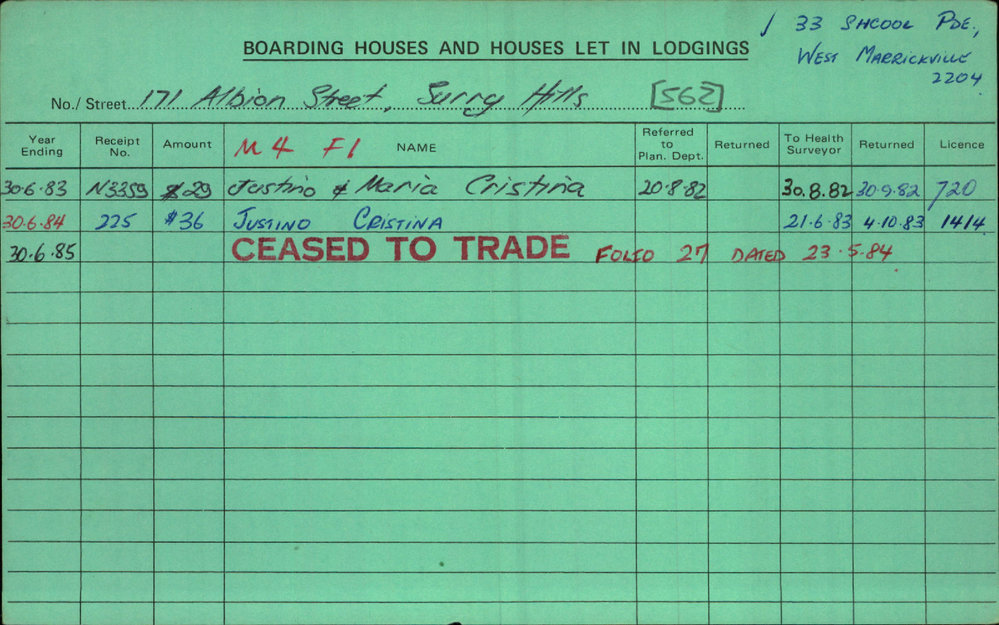 / 33 SHCOOL PDE.,
WEST MARRICKVILLE
2204
BOARDING HOUSES AND HOUSES LET IN LODGINGS
No./ Street 171 Albion Street, Surry Hills [562]
Year Ending Receipt No. Amount M 4 F 1 NAME Referred to Plan. Dept. Returned To Health Surveyor Returned Licence
30.6.83 N3359 $29 Justino & Maria Cristina 20.8.82 30.8.82 30.9.82 720
30.6.84 225 $36 JUSTINO CRISTINA 21.6.83 4.10.83 1414
30.6.85 CEASED TO TRADE FOLIO 27 DATED 23.5.84